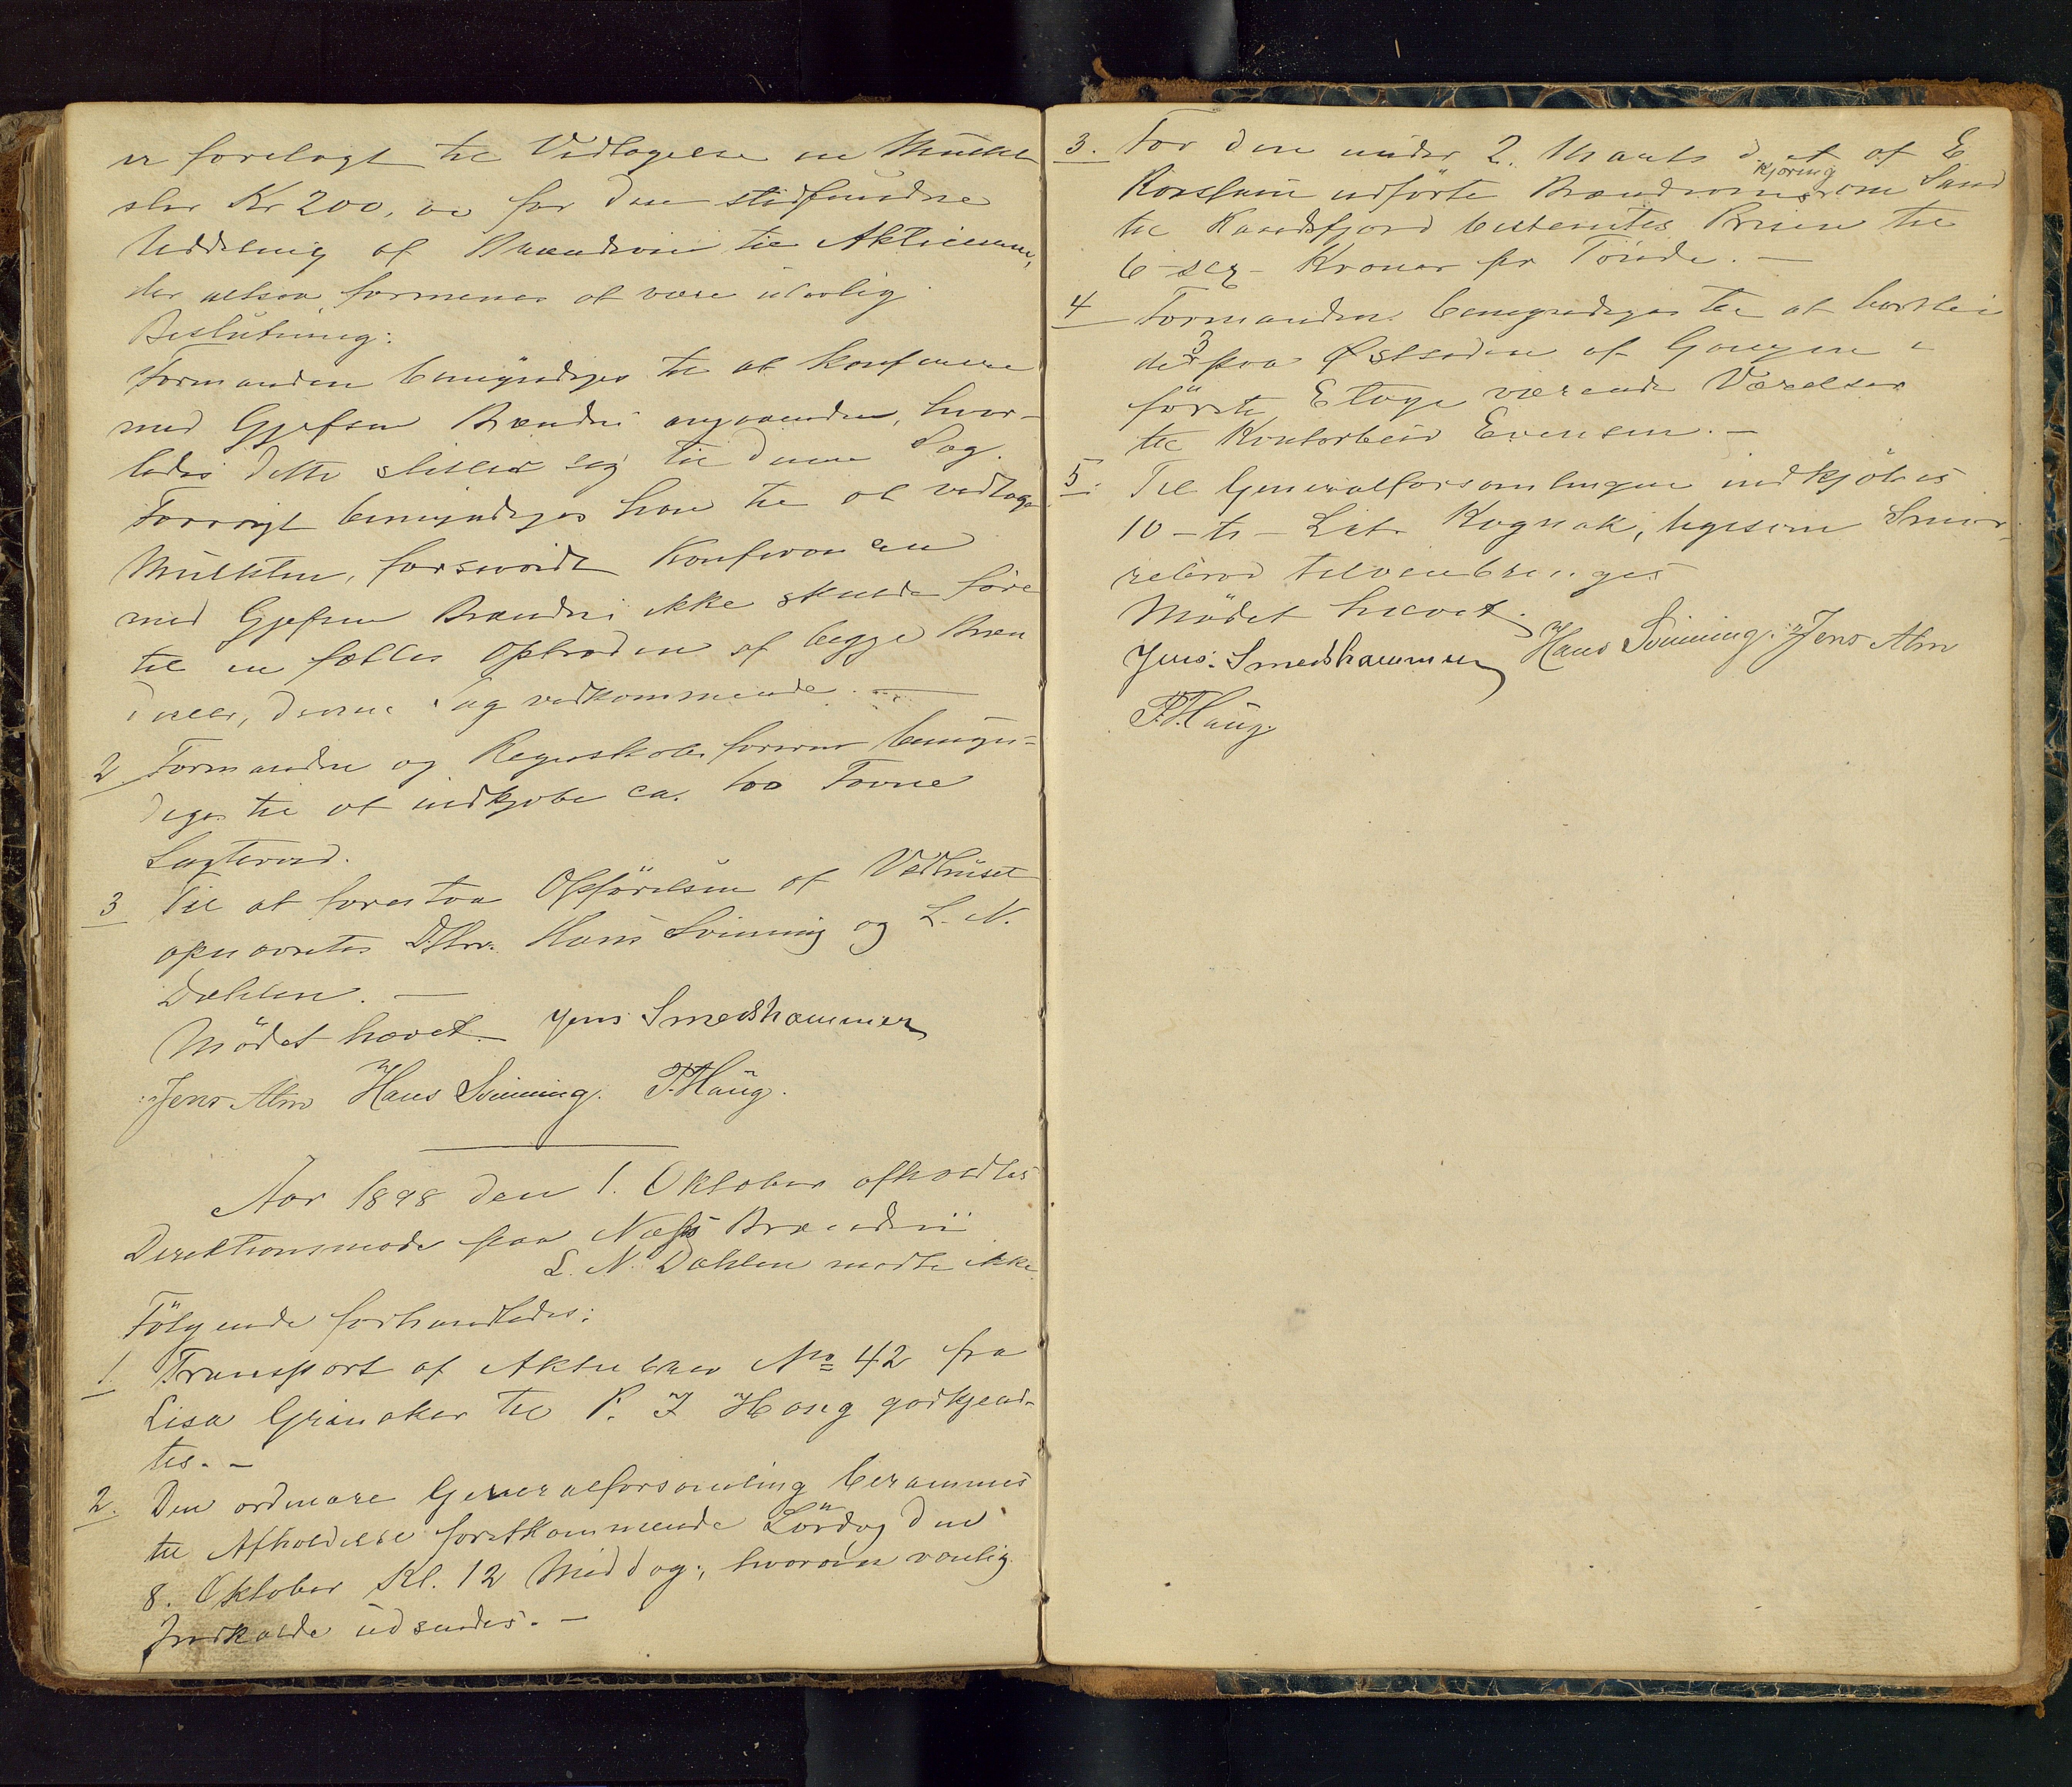 er forelagt til Vedtagelse en Mulkt
stor Kr 200, oo for den stedfundne
Uddeling af Brændevin til Aktieeierne,
der altsaa formenes at være ulovlig.
Beslutning:
Formanden bemyndiges til at konferere
med Gjefsen Brænderi angaaende, hvor-
ledes dette stiller sig til denne Sag.
Forøvrigt bemyndiges han til at vedtage
Mulkten, forsaavidt Konferencen
med Gjefsen Brænderi ikke skulde føre
til en fælles Optræden af begge Bræn
derier, denne Sag vedkommende. —
2 Formanden og Regnskabsfører bemyn-
diges til at indkjøbe ca. 100 Favne
Lagterved.
3 Til at forestaa Opførelsen af Vedhuset
opnævntes DHrr. Hans Svinning og L. N.
Dæhlen. —
Mødet hævet. Jens Smedshammer
Jens Alm Hans Svinning. P. Haug.
Aar 1898 den 1. Oktober afholdtes
Direktionsmøde paa Næss Brænderi
L. N. Dæhlen mødte ikke
Følgende forhandledes:
1. Transport af Aktiebrev No 42 fra
Lisa Grinaker til P. J Haug godkjend-
tes. —
2. Den ordinære Generalforsamling berammes
til Afholdelse førstkommende Lørdag den
8. Oktober Kl. 12 Middag, hvorom vanlig
Indkaldelse udsendes. —
3. For den under 2. Marts d. A. af E
Korsheim udførte Brændevinskjøring om Land
til Randsfjord bestemtes Prisen til
6 - sex - Kroner pr Tønde. —
4 Formanden bemyndiges til at bortleie
de 3 paa Østsiden af Gangen i
første Etage værende Værelser
til Kontorbeir Evensen. —
5. Til Generalforsamlingen indkjøbes
10 - ti - Liter Kognak, ligesom Smør-
rebrød tilveiebringes
Mødet hævet.
Jens Smedshammer Hans Svinning. Jens Alm
P. Haug.